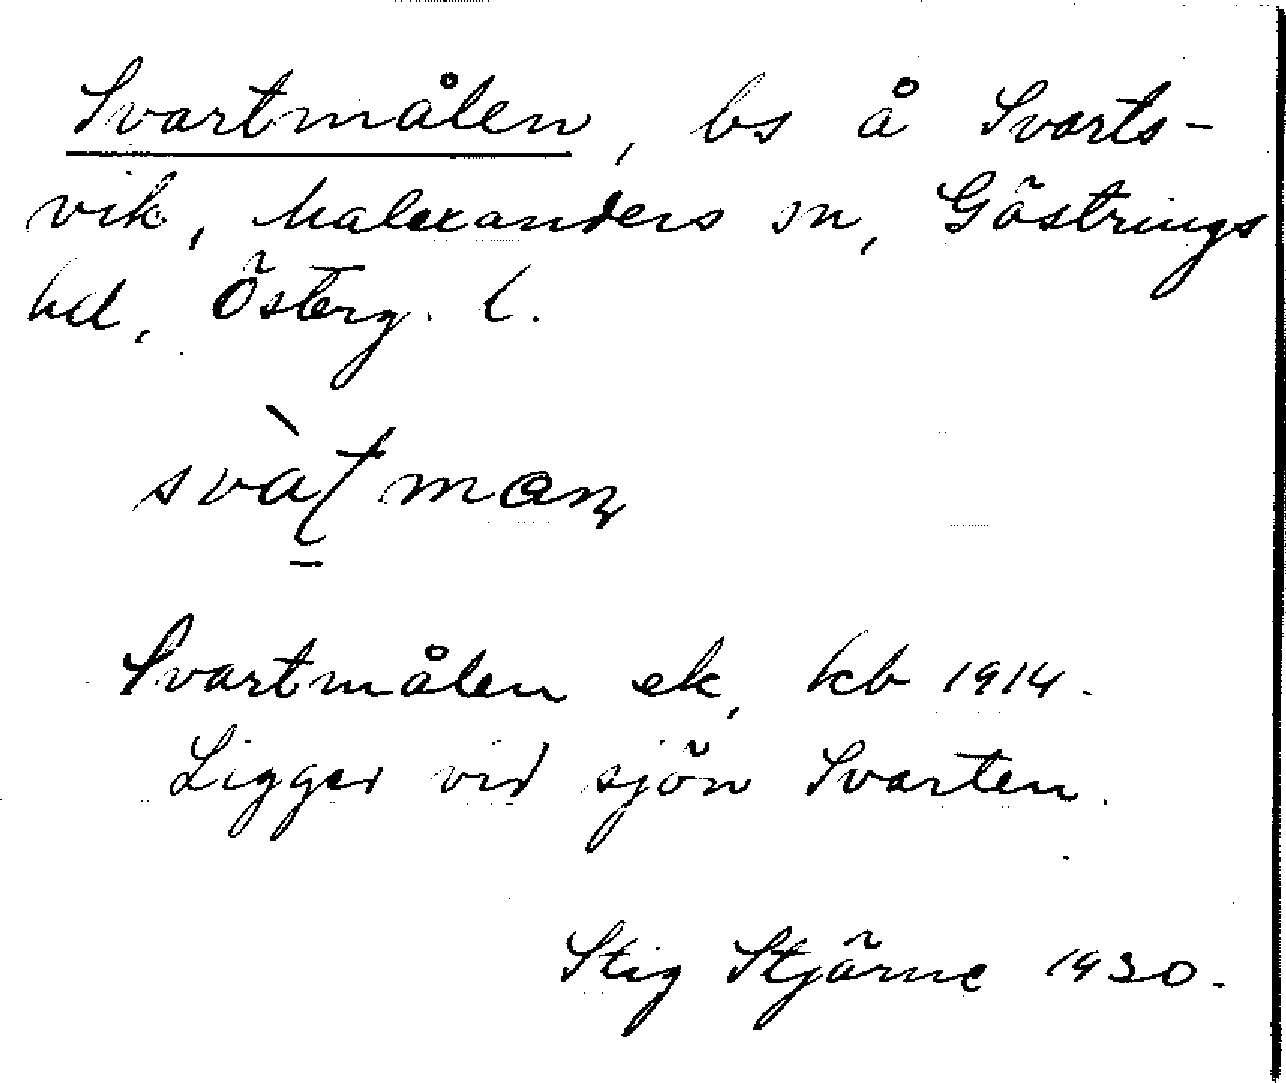 Svartmålen, bs å Svarts-
vik, Malexanders sn, Göstrings
hd, Österg. l.
Svartmålen ek, kb 1914.
Ligger vid sjön Svarten.
Stig Stjärne 1930.